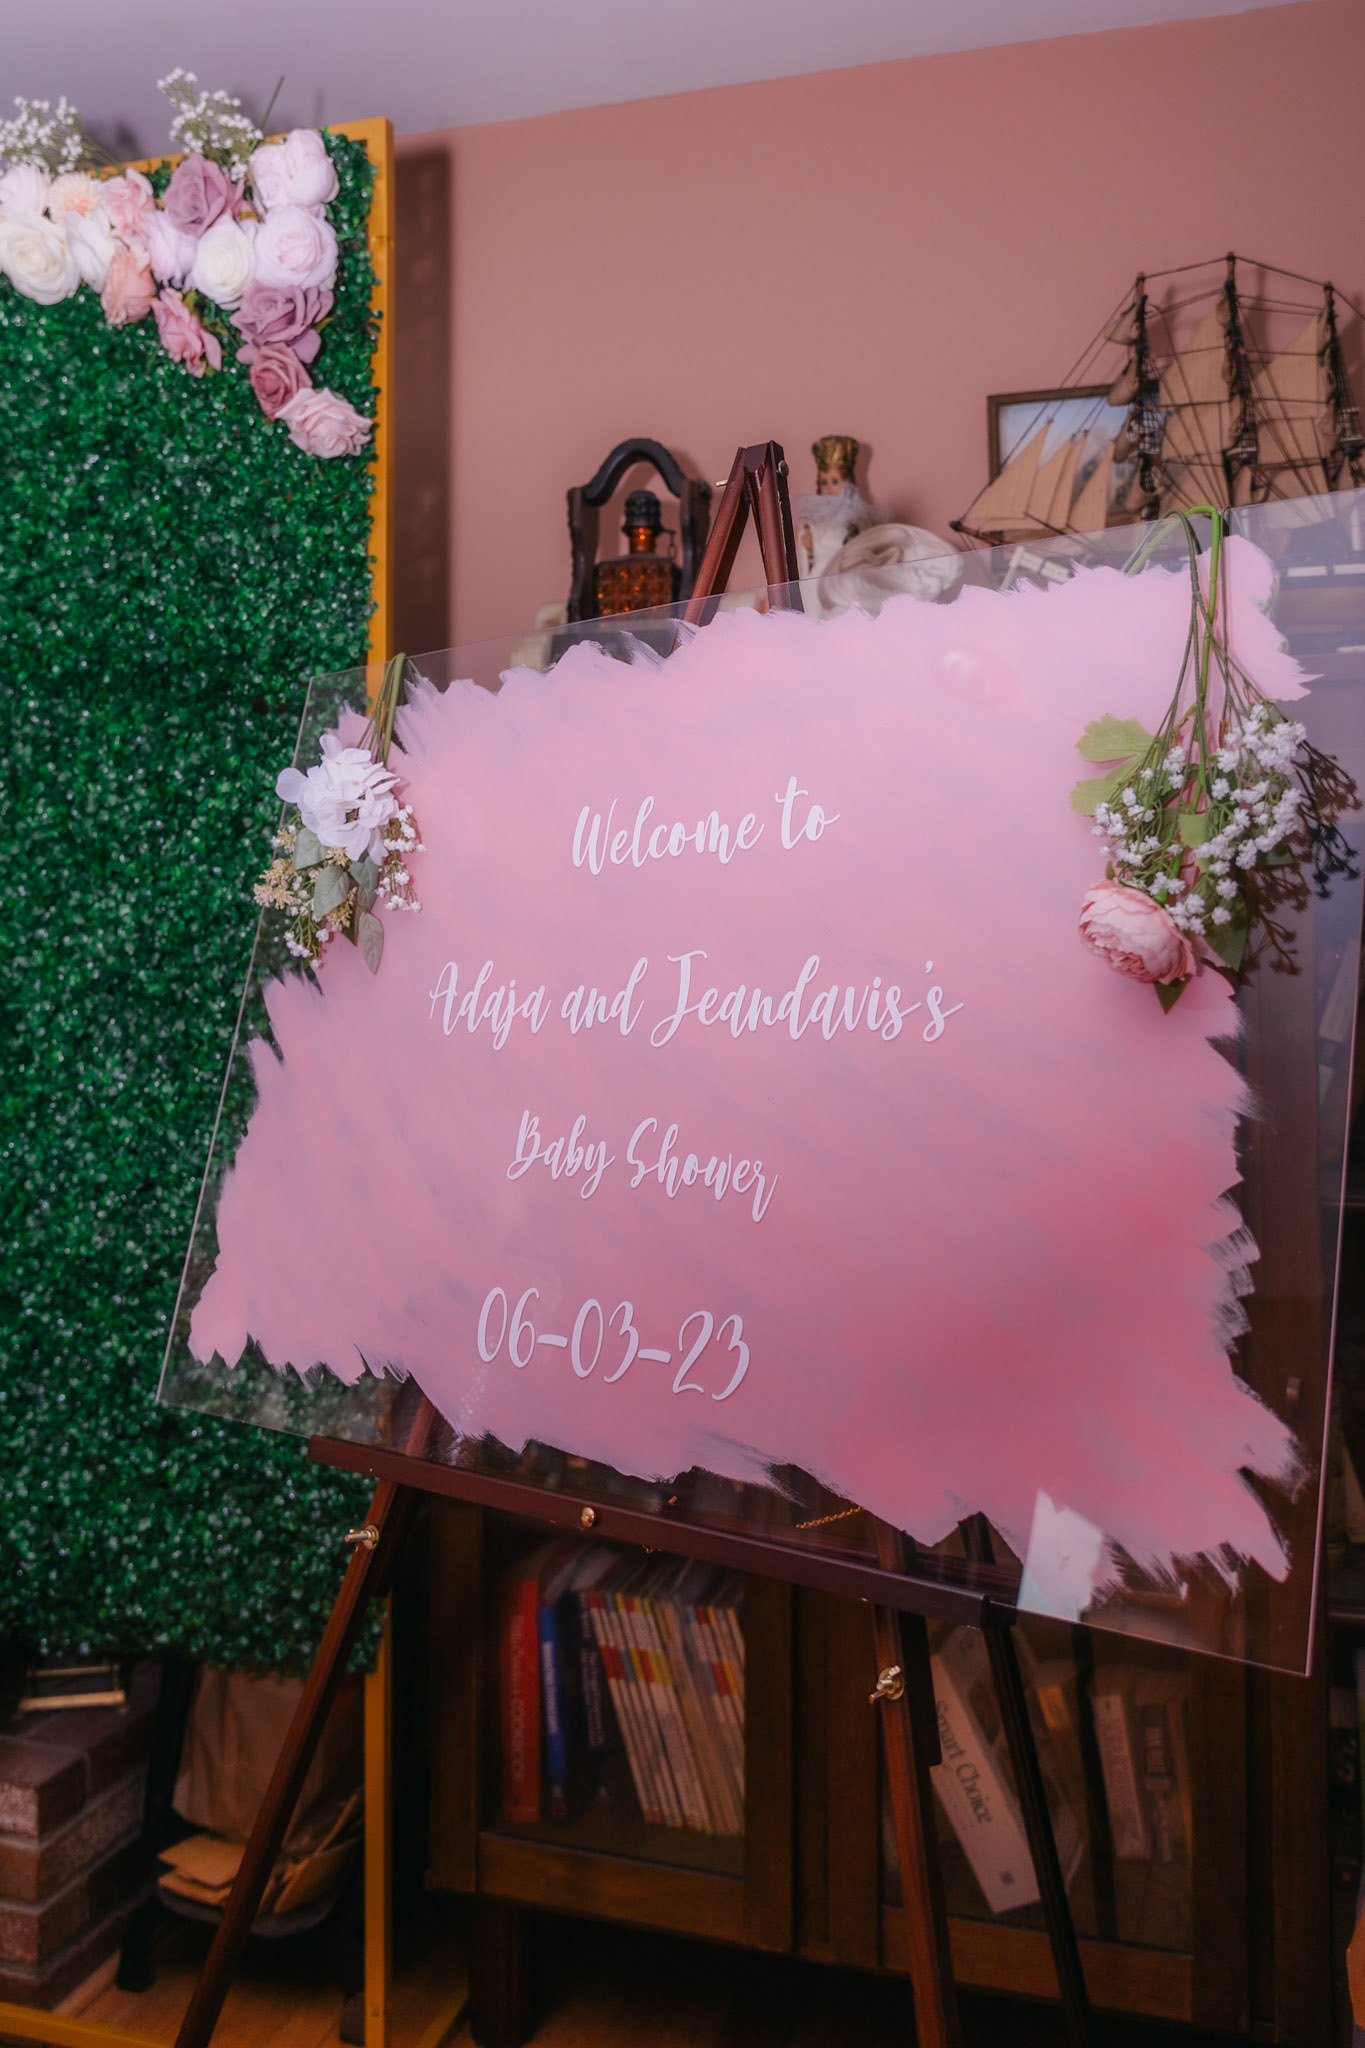 Welcome to
Adaja and Jeandavis's
Baby Shower
06-03-23
COOKBOOK
Smart Choice